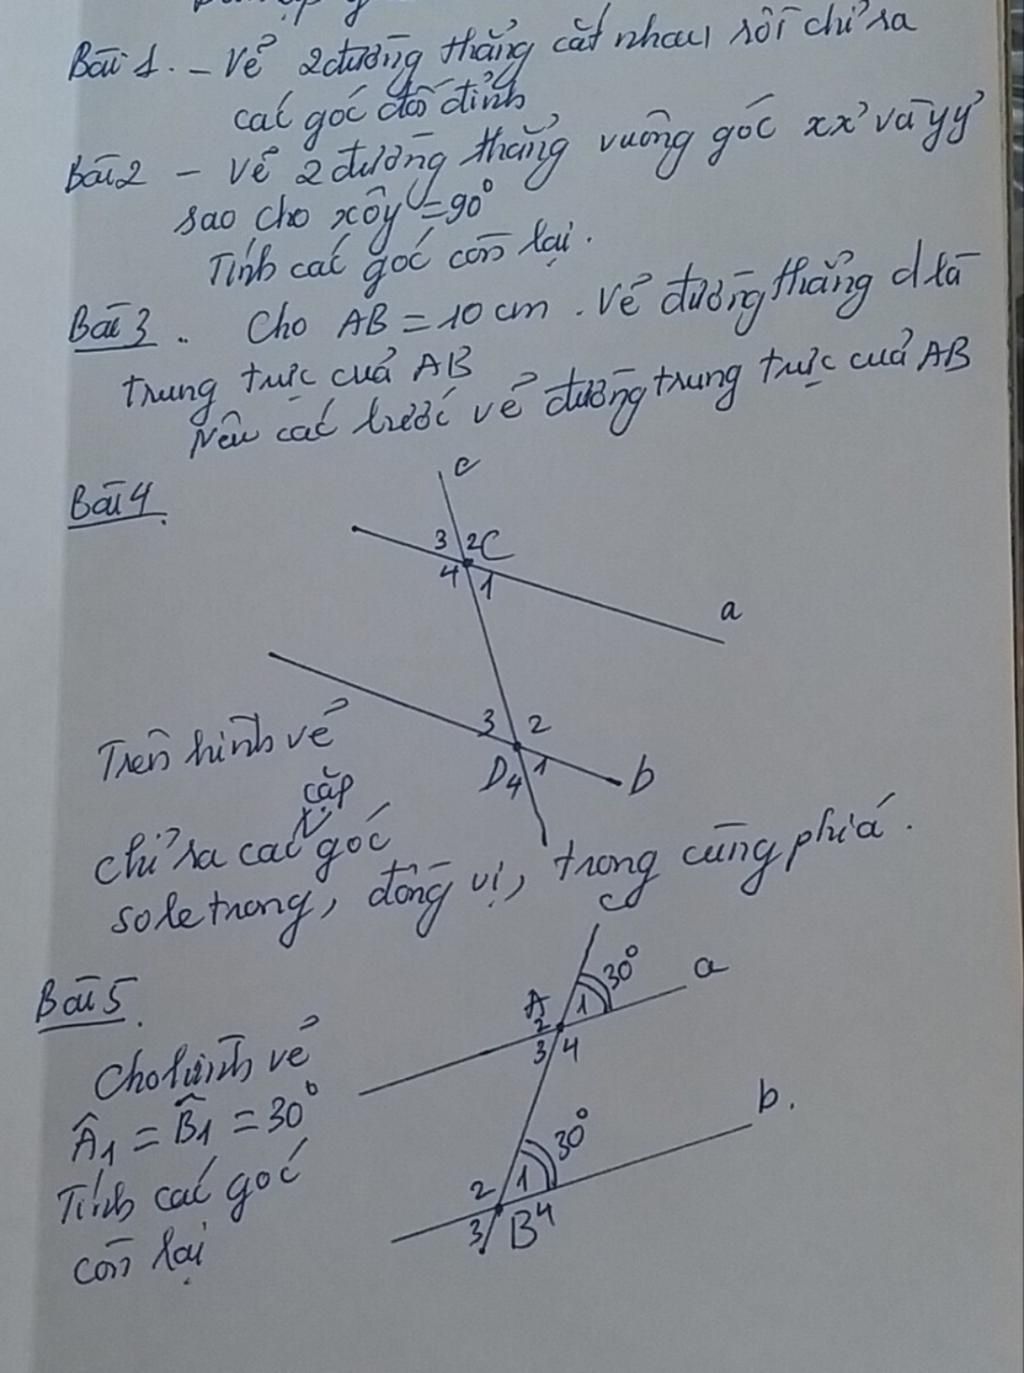 Bài 1. - Vẽ 2 đường thẳng cắt nhau rồi chỉ ra
các góc đối đỉnh
Bài 2 - Vẽ 2 đường thẳng vuông góc xx' và yy'
sao cho xôy = 90°
Tính các góc còn lại.
Bài 3. Cho AB = 10 cm. Vẽ đường thẳng d là
trung trực của AB
Nêu các bước vẽ đường trung trực của AB
Bài 4.
c
3 2 C
4 1
a
3 2
D 4 1
b
Trên hình vẽ
cặp
chỉ ra các góc
so le trong, đồng vị, trong cùng phía.
Bài 5.
c
30°
a
A
2 1
3 4
Cho hình vẽ
Â1 = B̂1 = 30°
Tính các góc
còn lại
b.
30°
2 1
3 B 4